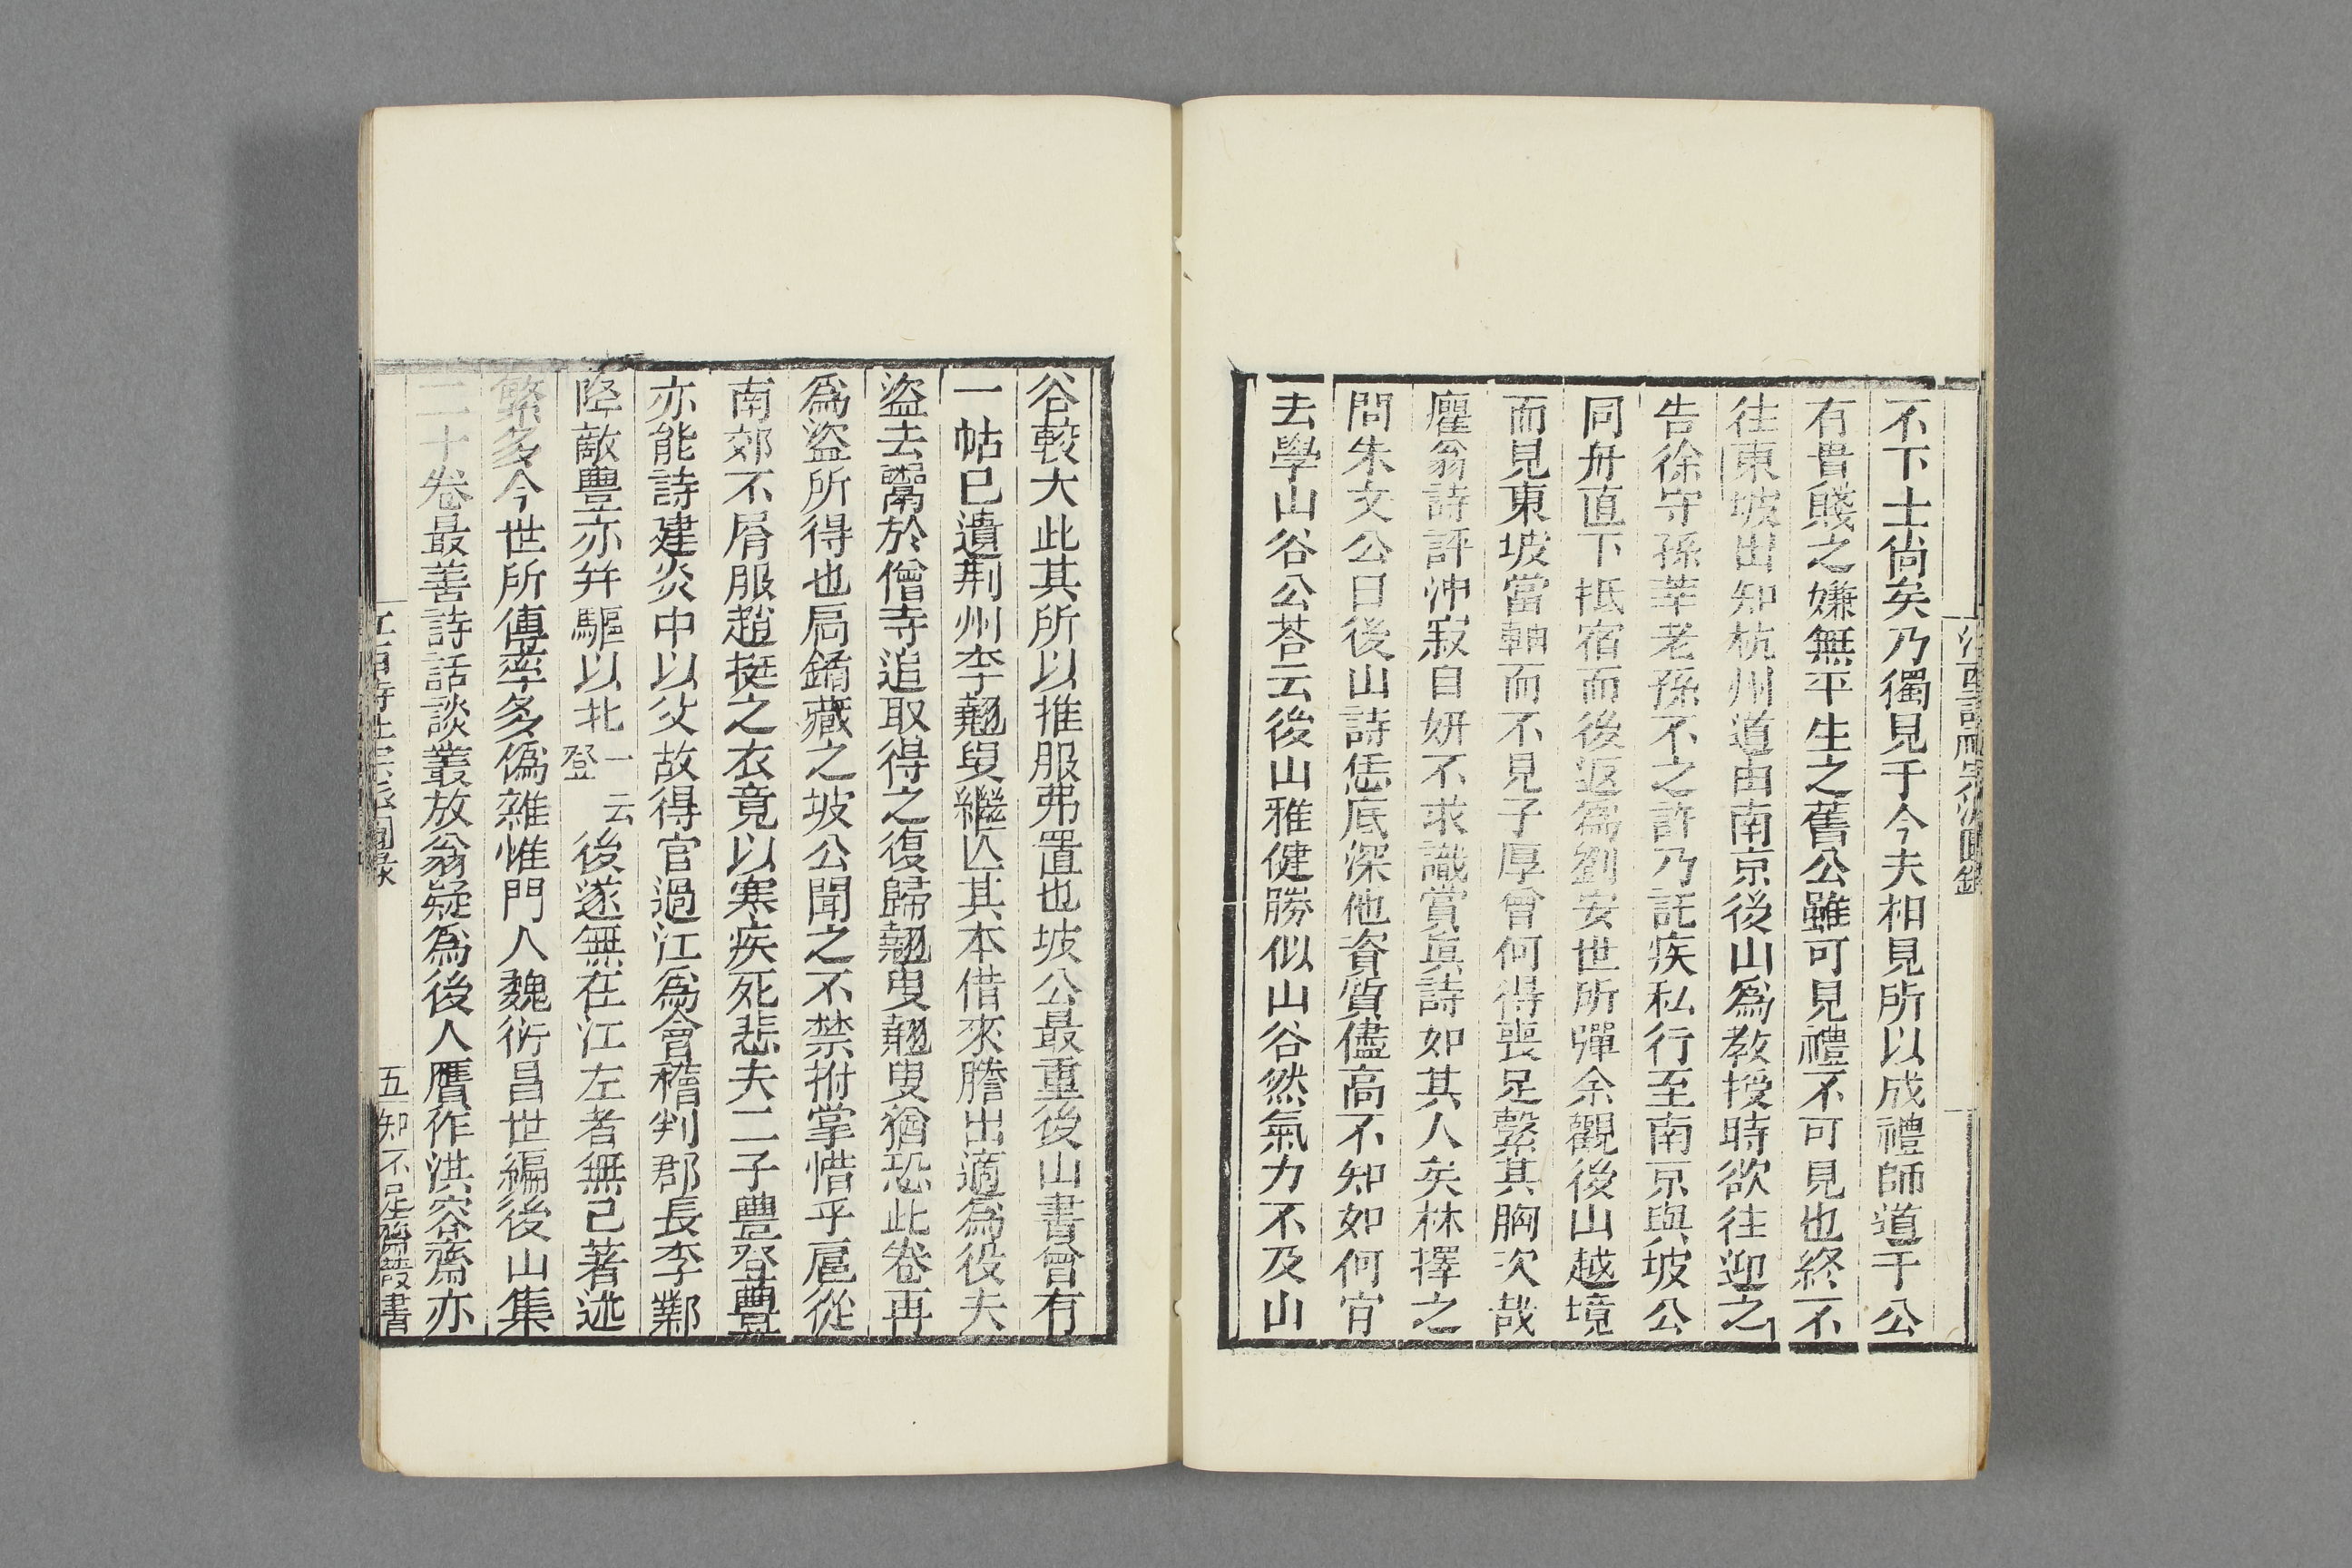 江西詩社宗派圖錄
不下士尙矣乃獨見于今夫相見所以成禮師道于公
有貴賤之嫌無平生之舊公雖可見禮不可見也終不
往東坡出知杭州道由南京後山爲敎授時欲往迎之
告徐守孫莘老孫不之許乃託疾私行至南京與坡公
同舟直下抵宿而後返爲劉安世所彈余觀後山越境
而見東坡當軸而不見子厚曾何得喪足繫其胸次哉
臞翁詩評沖寂自妍不求識賞眞詩如其人矣林擇之
問朱文公曰後山詩恁底深他資質儘高不知如何肯
去學山谷公荅云後山雅健勝似山谷然氣力不及山
谷較大此其所以推服弗置也坡公最重後山書曾有
一帖已遺荆州李翹叟繼亾其本借來謄出適爲役夫
盜去鬻於僧寺追取得之復歸翹叟翹叟猶恐此卷再
爲盜所得也扃鐍藏之坡公聞之不禁拊掌惜乎扈從
南郊不屑服趙挺之衣竟以寒疾死悲夫二子豐登豐
亦能詩建炎中以父故得官過江爲會稽判郡長李鄴
降敵豐亦幷驅以北一云登後遂無在江左者無己著述
繁多今世所傳率多僞雜惟門人魏衍昌世編後山集
二十卷最善詩話談叢放翁疑爲後人贋作洪容齋亦
江西詩社宗派圖錄
五
知不足齋叢書